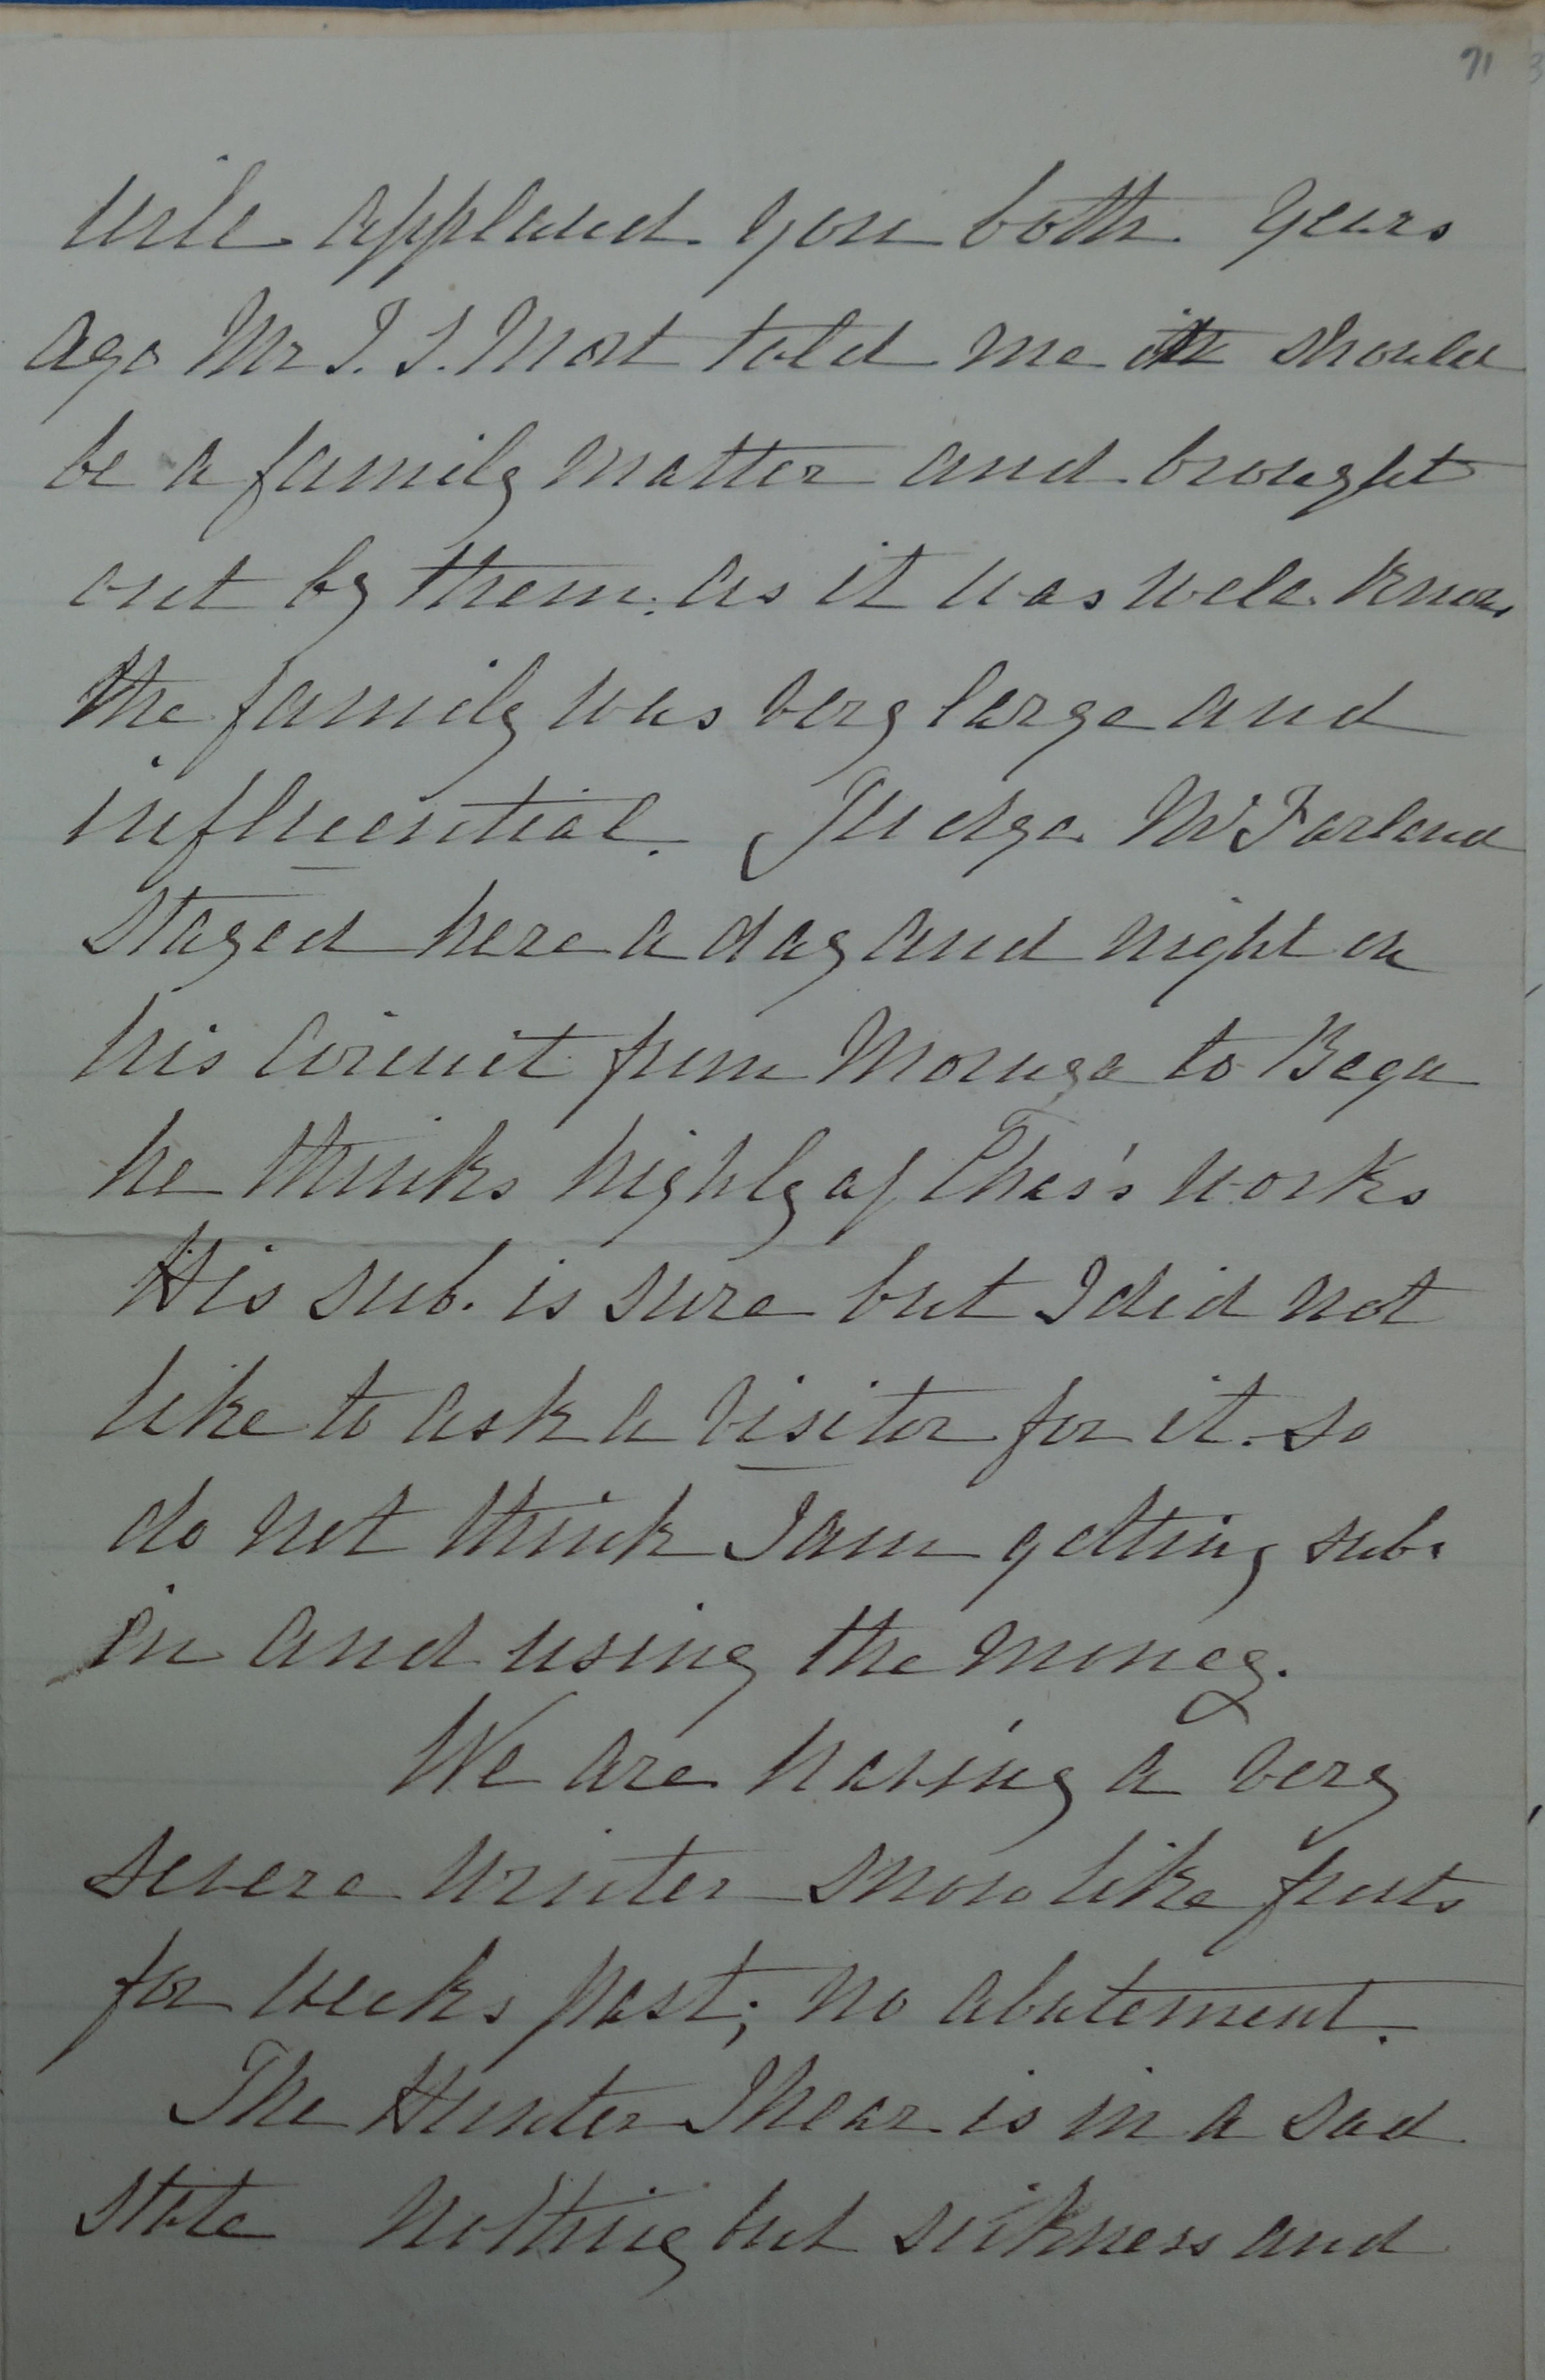 71
will applaud you both. Years
ago Mr T. S. Mort told me it should
be a family matter and brought
out by them; as it was well known
the family was very large and
influential. Judge McFarland
stayed here a day and night on
his circuit from Moruya to Bega
he thinks highly of Chas's works
His sub. is sure but I did not
like to ask a visitor for it. so
do not think I am getting subs
in and using the money.
We are having a very
severe winter snow like frosts
for weeks past; no abatement.
The Hunter I hear is in a sad
state nothing but sickness and